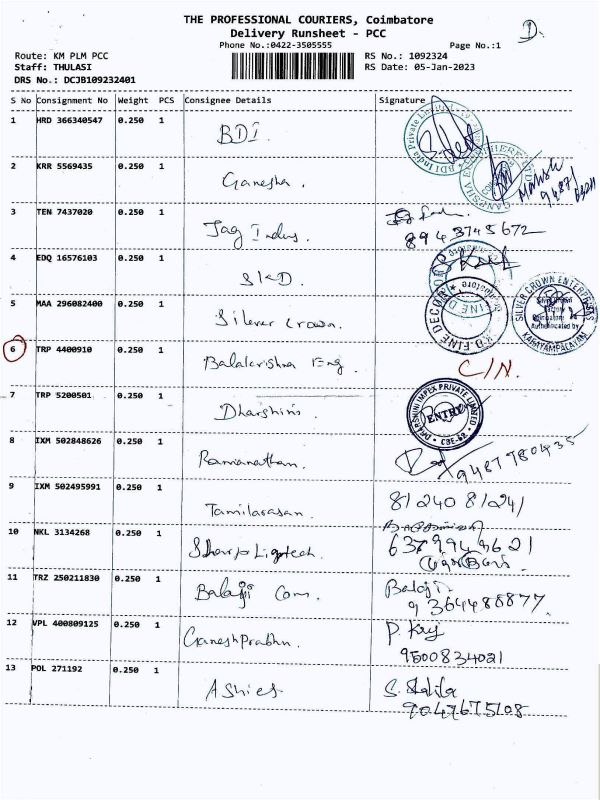 THE PROFESSIONAL COURIERS, Coimbatore
Delivery Runsheet - PCC
Phone No.:0422-3505555
Page No.:1
D.
Route: KM PLM PCC
RS No.: 1092324
Staff: THULASI
RS Date: 05-Jan-2023
DRS No.: DCJB109232401
S No Consignment No Weight PCS Consignee Details Signature
1 HRD 366340547 0.250 1 BDI
2 KRR 5569435 0.250 1 Ganesha. Mahesh
3 TEN 7437020 0.250 1 Jag Indus.
8943745672
4 EDQ 16576103 0.250 1 SKD
5 MAA 296082400 0.250 1 Silever Crown.
SILVER CROWN ENTERPRISES
KARAYAMPALAYAM
6 TRP 4400910 0.250 1 Balakrishna Eng. C/N.
7 TRP 5200501 0.250 1 Dharshini.
DHARSHINI IMPEX PRIVATE LIMITED
ENTRY
CBE-62
8 IXM 502848626 0.250 1 Ramanathan. 9487980435
9 IXM 502495991 0.250 1 Tamilarasan. 8124081241
10 NKL 3134268 0.250 1 Sharp Ligptech.
6379949621
11 TRZ 250211830 0.250 1 Balaji Com. Balaji
9364488877.
12 VPL 400809125 0.250 1 GaneshPrabhu. P. Kaj
9500834021
13 POL 271192 0.250 1 Ashies S. Shalila
9047675108